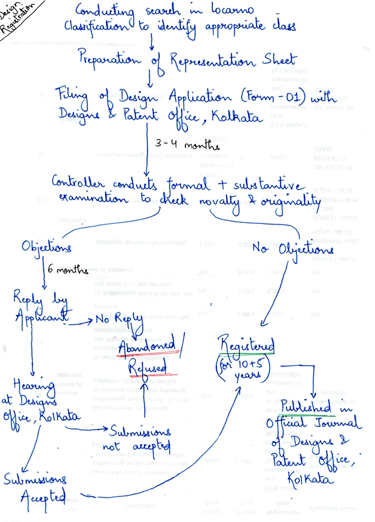 Design
Registration
Conducting search in Locarno
Classification to identify appropriate class
Preparation of Representation Sheet
Filing of Design Application (Form-01) with
Designs & Patent Office, Kolkata
3-4 months
Controller conducts formal + substantive
examination to check novalty & originality
Objections
No Objections
6 months
Reply by
Applicant
No Reply
Abandoned/
Refused
Registered
(for 10+5
years)
Hearing
at Designs
Office, Kolkata
Submissions
not accepted
Published in
Official Journal
of Designs &
Patent Office,
Kolkata
Submissions
Accepted